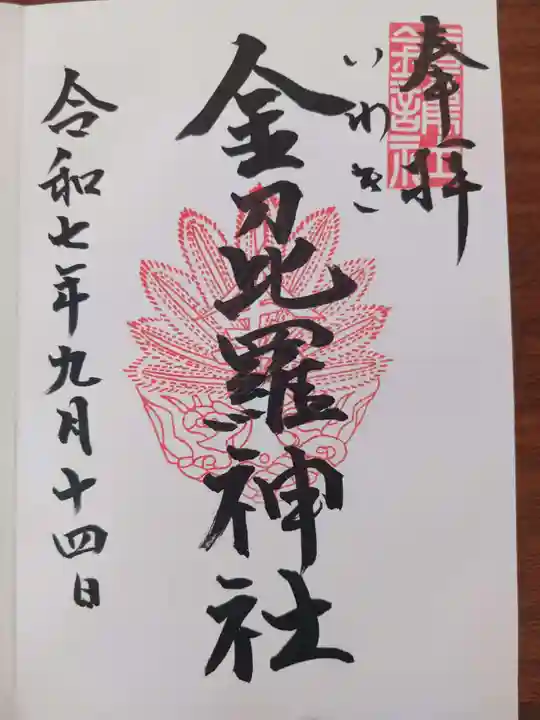 奉拝
いわき
金刀比羅神社
令和七年九月十四日